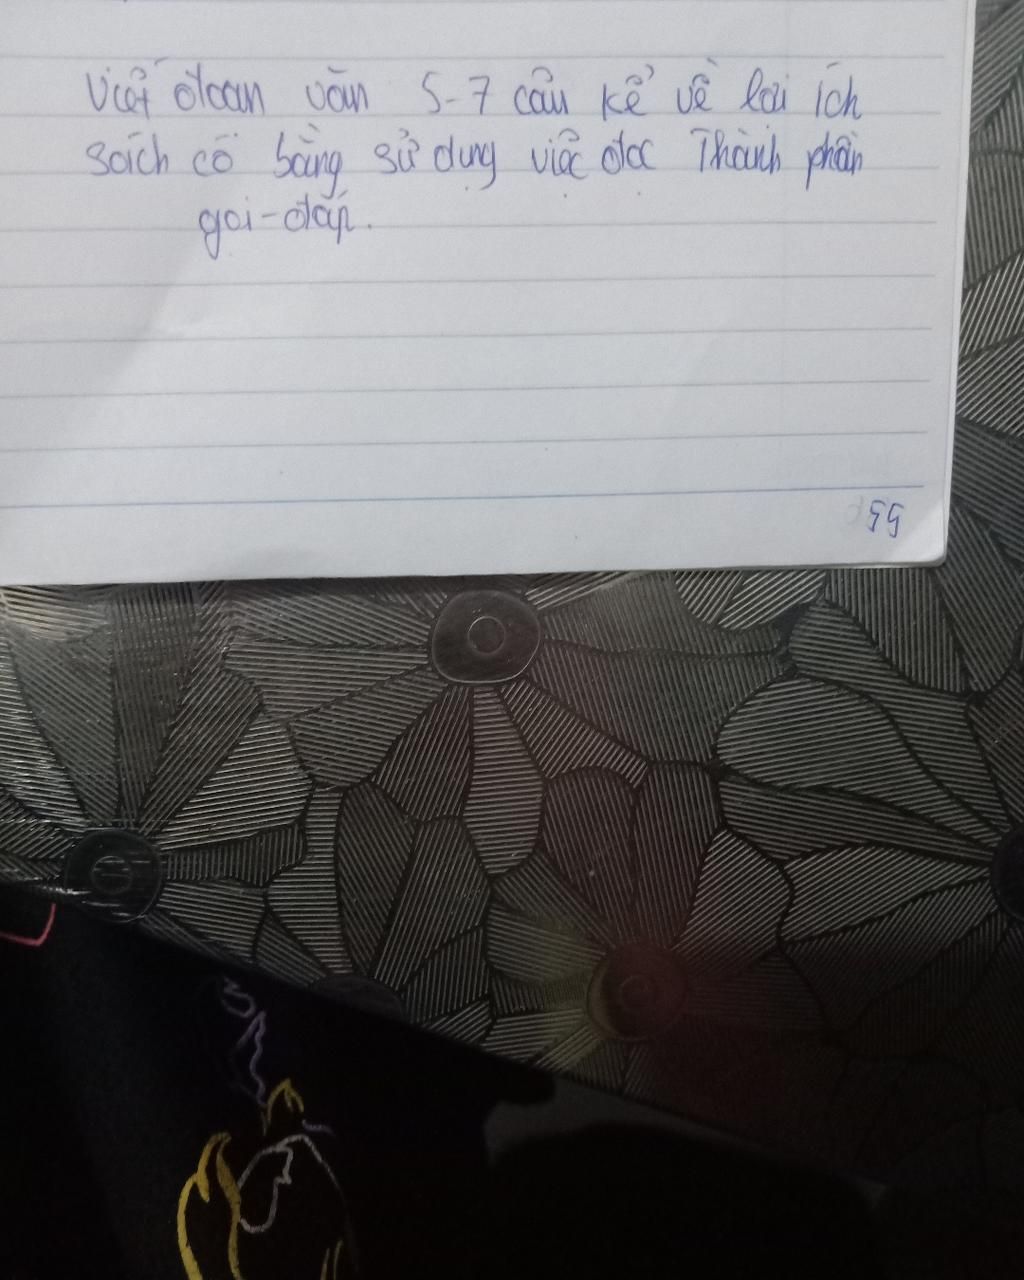 Viết đoạn văn 5-7 câu kể về lợi ích
sách có bằng sử dụng việc đọc Thành phần
gọi-đáp.
55